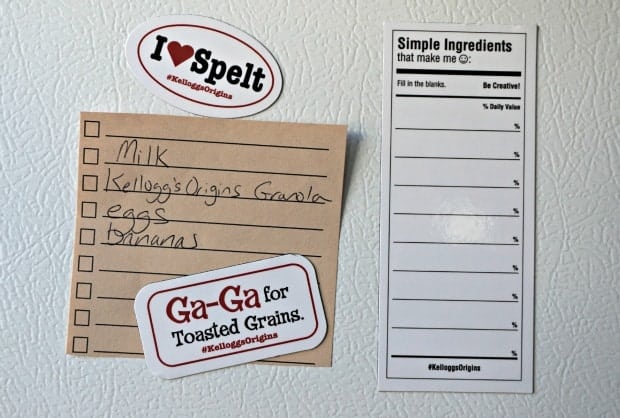 I ❤ Spelt
#KelloggsOrigins
Milk
Kellogg's Origins Granola
eggs
bananas
Ga-Ga for
Toasted Grains.
#KelloggsOrigins
Simple Ingredients
that make me ☺:
Fill in the blanks. Be Creative!
% Daily Value
%
%
%
%
%
%
%
%
%
#KelloggsOrigins